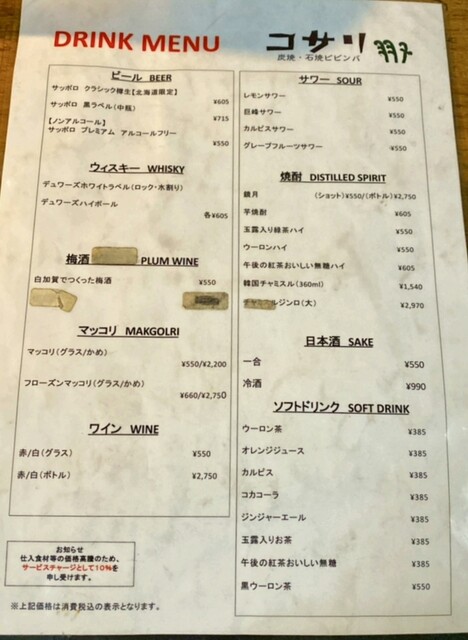 DRINK MENU
コサリ
炭焼・石焼ビビンバ
ビール BEER
サッポロ クラシック樽生【北海道限定】
¥605
サッポロ 黒ラベル(中瓶)
¥715
【ノンアルコール】
サッポロ プレミアム アルコールフリー
¥550
ウィスキー WHISKY
デュワーズホワイトラベル(ロック・水割り)
デュワーズハイボール
各¥605
梅酒 PLUM WINE
白加賀でつくった梅酒 ¥550
マッコリ MAKGOLRI
マッコリ(グラス/かめ)
¥550/¥2,200
フローズンマッコリ(グラス/かめ)
¥660/¥2,750
ワイン WINE
赤/白(グラス) ¥550
赤/白(ボトル) ¥2,750
お知らせ
仕入食材等の価格高騰のため、
サービスチャージとして10%を
申し受けます。
※上記価格は消費税込の表示となります。
サワー SOUR
レモンサワー ¥550
巨峰サワー ¥550
カルピスサワー ¥550
グレープフルーツサワー ¥550
焼酎 DISTILLED SPIRIT
鏡月 (ショット)¥550/(ボトル)¥2,750
芋焼酎 ¥605
玉露入り緑茶ハイ ¥550
ウーロンハイ ¥550
午後の紅茶おいしい無糖ハイ ¥605
韓国チャミスル(360ml) ¥1,540
ジンロ(大) ¥2,970
日本酒 SAKE
一合 ¥550
冷酒 ¥990
ソフトドリンク SOFT DRINK
ウーロン茶 ¥385
オレンジジュース ¥385
カルピス ¥385
コカコーラ ¥385
ジンジャーエール ¥385
玉露入りお茶 ¥385
午後の紅茶おいしい無糖 ¥385
黒ウーロン茶 ¥550